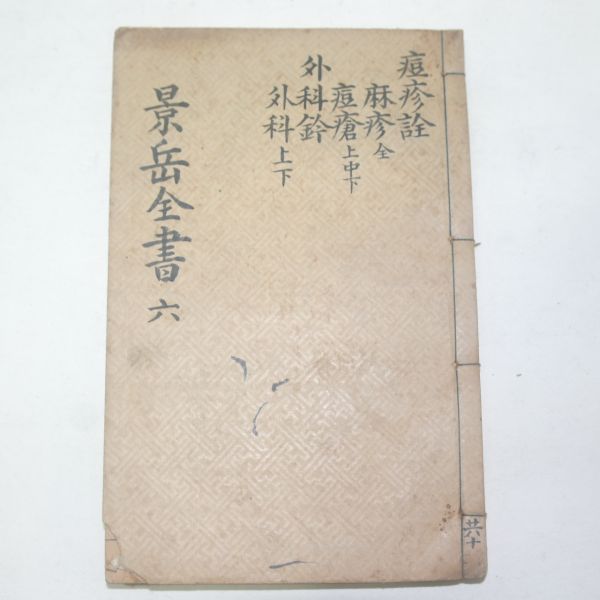 痘疹詮
麻疹全
痘瘡上中下
外科鈐
外科上下
景岳全書 六